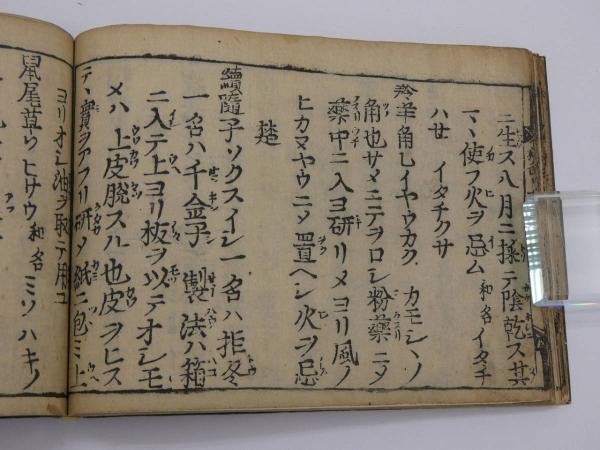 ニ生ス八月ニ採テ陰乾ス其
マヽ使フ火ヲ忌ム 和名イタチ
ハせ イタチクサ
羚羊角レイヤウカク カモシヽノ
角也サメニテヲロシ粉藥ニメ
藥中ニ入ヨ研リメヨリ風ノ
ヒカヌヤウニメ置ヘシ火ヲ忌
續隨子ソクスイシ一名ハ拒冬
一名ハ千金子 製法ハ箱
ニ入テ上ヨリ板ヲ以テオシモ
メハ上皮脱スル也皮ヲヒス
テヽ實ヲアフリ研メ紙ニ包ミ上
ヨリオシ油ヲ取テ用ユ
鼠尾草 ソヒサウ 和名ミソハキノ